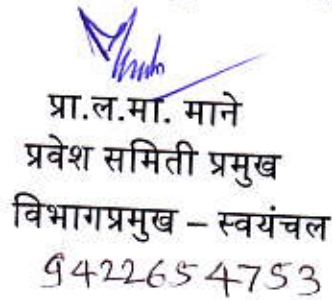 प्रा.ल.मा. माने
प्रवेश समिती प्रमुख
विभागप्रमुख – स्वयंचल
9422654753